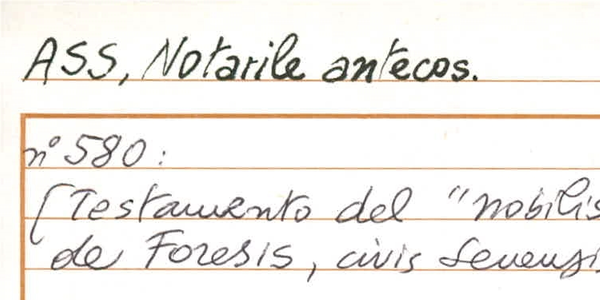 ASS, Notarile antecos.
n° 580:
[Testamento del "nobilis
de Foresis, civis Senensis